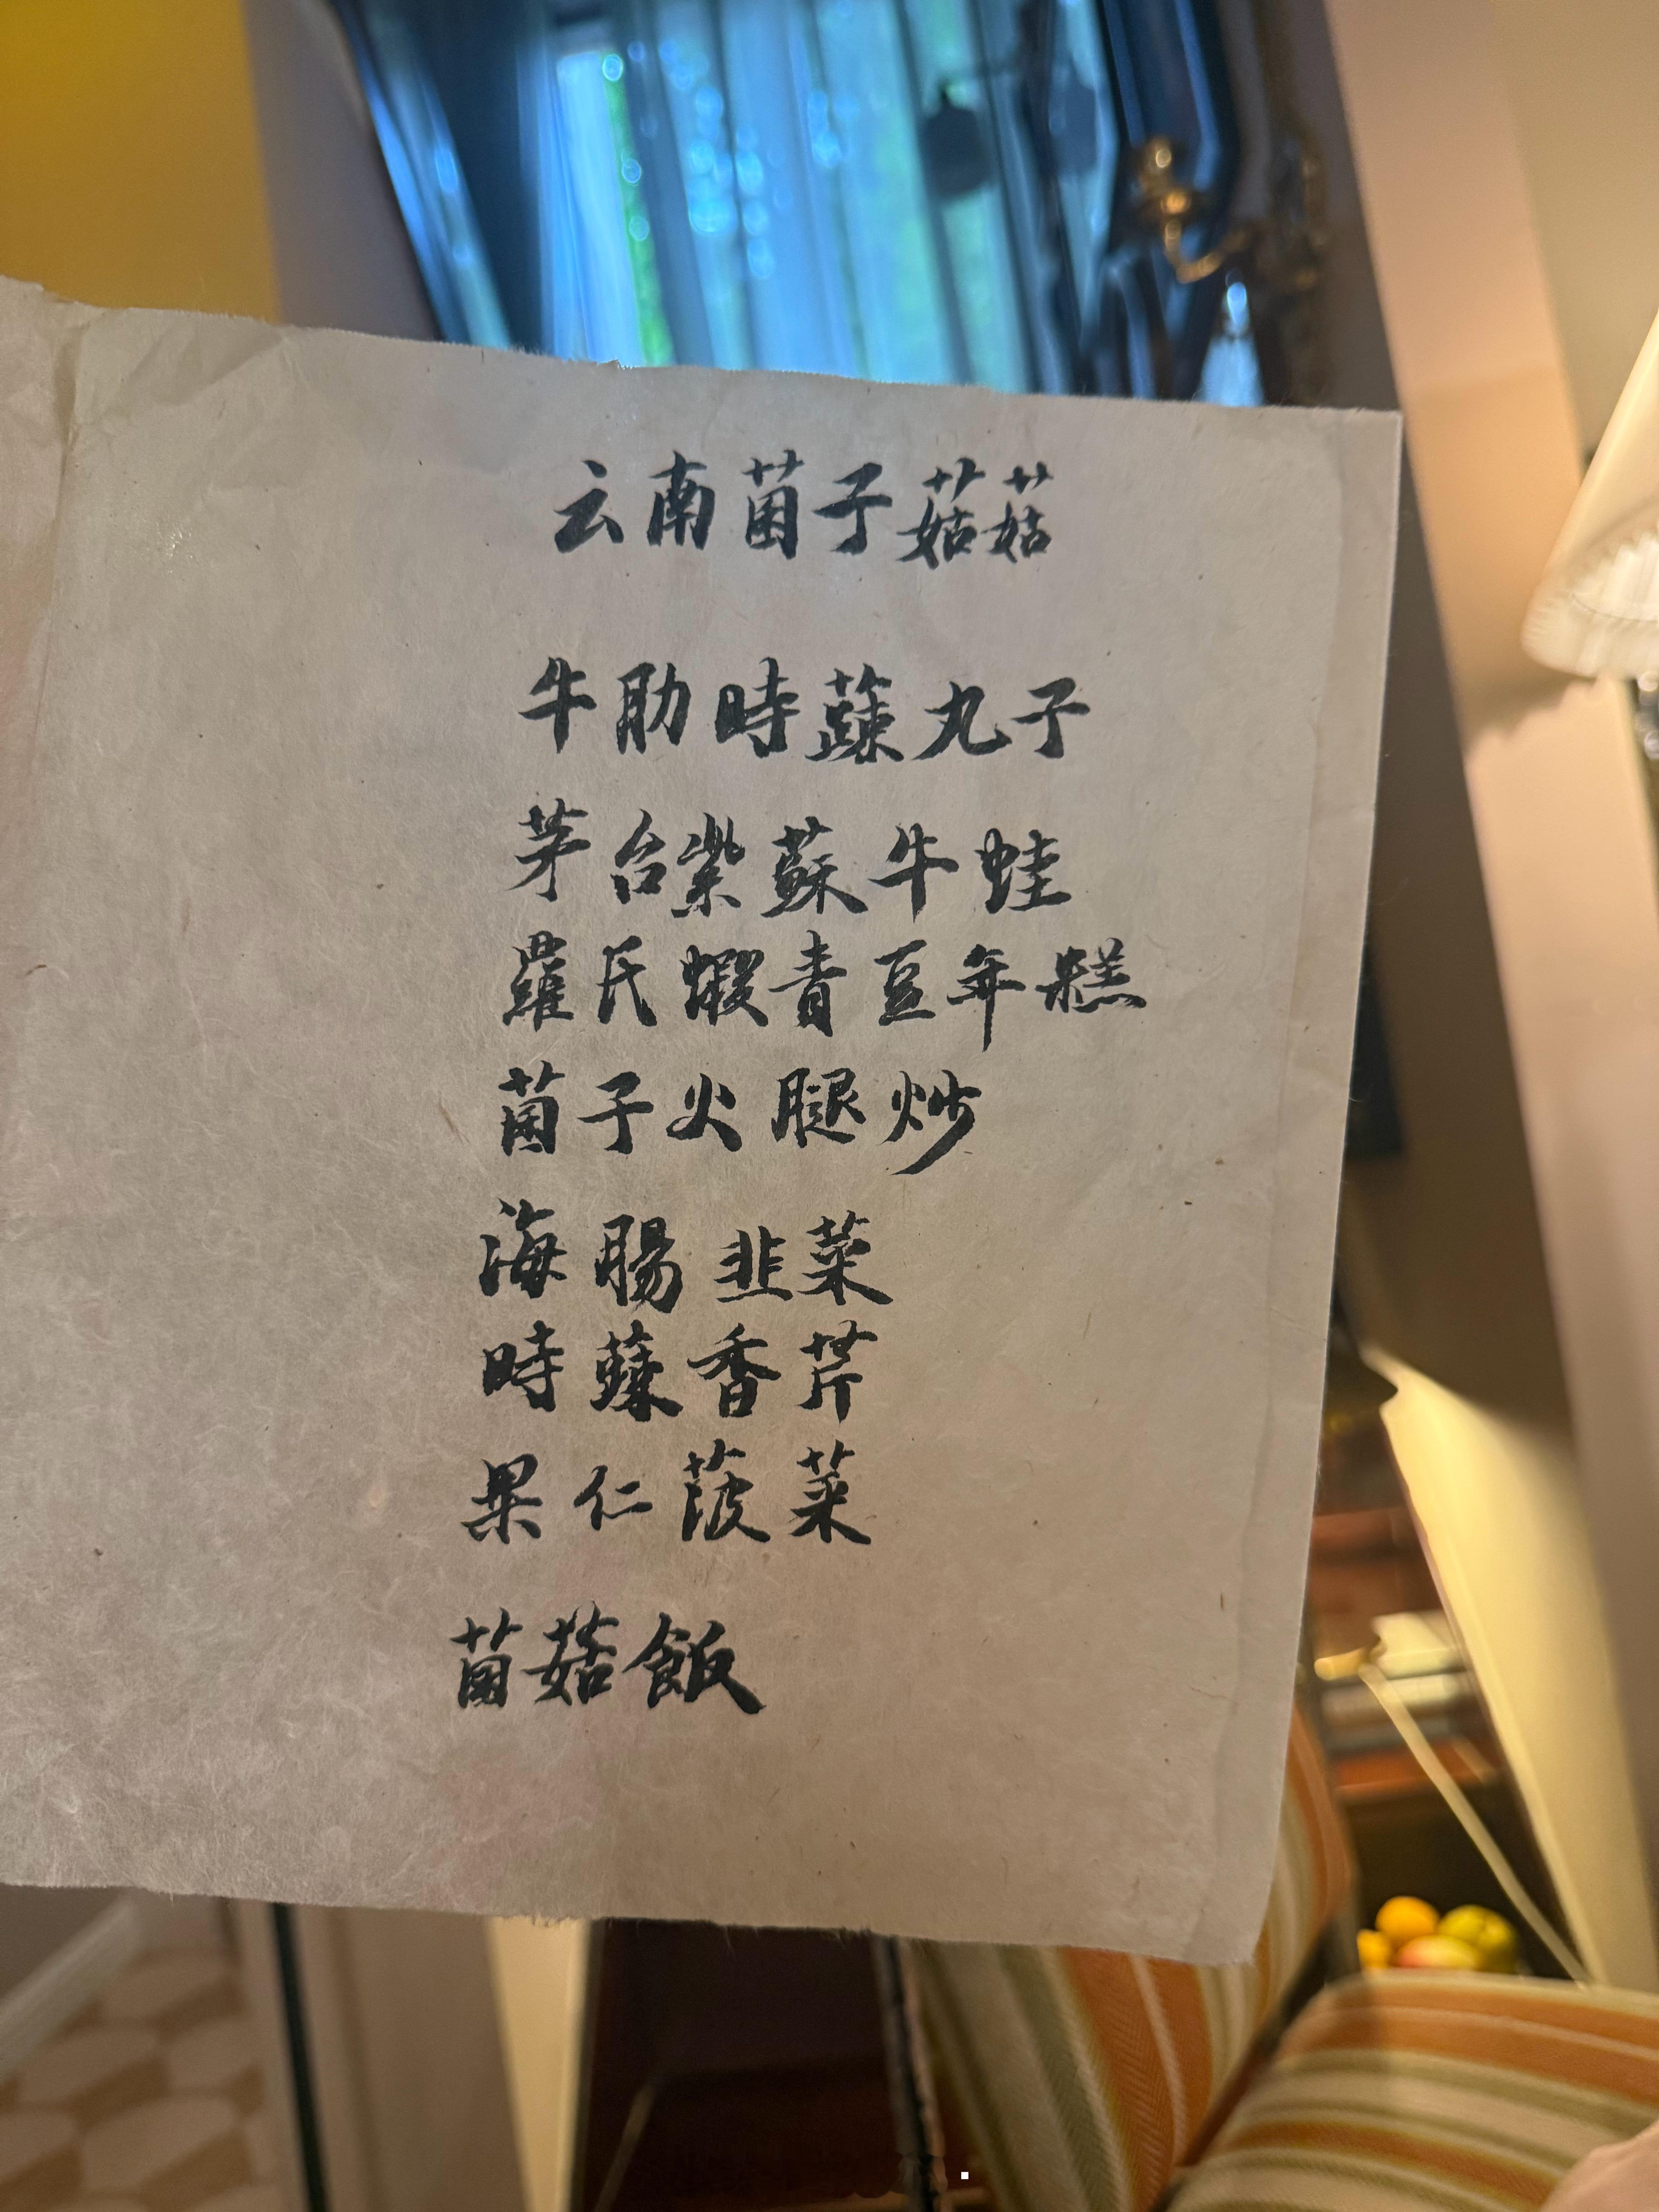 云南菌子菇菇
牛肋時蔬丸子
茅台紫蘇牛蛙
羅氏蝦青豆年糕
菌子火腿炒
海腸韭菜
時蔬香芹
果仁菠菜
菌菇飯